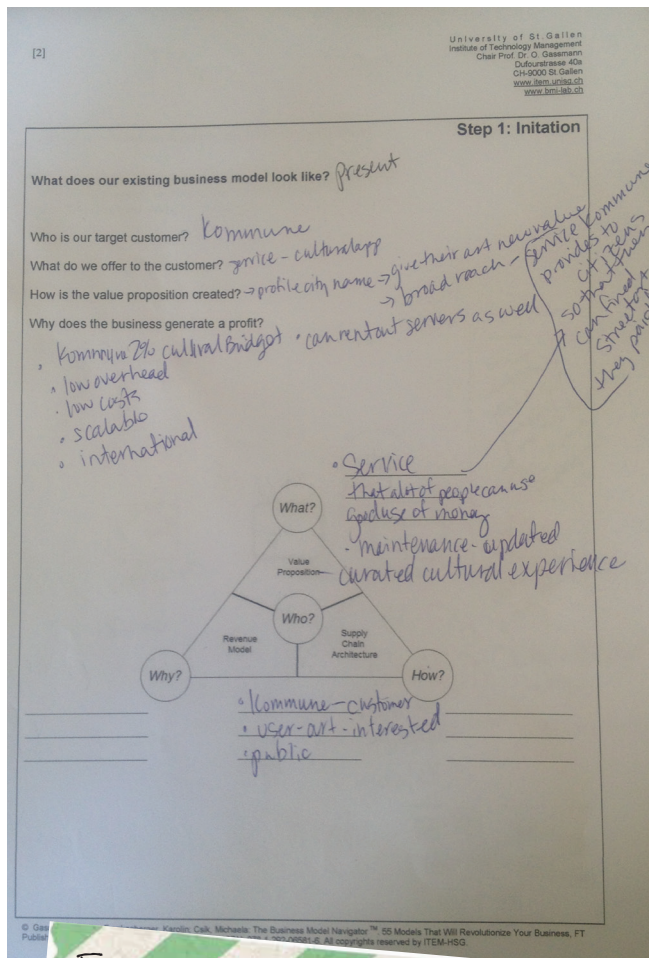 [2]
University of St.Gallen
Institute of Technology Management
Chair Prof. Dr. O. Gassmann
Dufourstrasse 40a
CH-9000 St.Gallen
www.item.unisg.ch
www.bmi-lab.ch
Step 1: Initation
What does our existing business model look like? Present
Who is our target customer? Kommune
What do we offer to the customer? service - cultural app
How is the value proposition created? → profile city name → give their art new value
→ broad reach -
service Kommune
provides to
citizens
so that they
can find
Streetart
they
Why does the business generate a profit?
• 2% cultural Budget • can rent out servers as well
• low overhead
• low costs
• scalable
• international
• Service
that alot of people can use
good use of money
• maintenance - updated
curated cultural experience
What?
Value
Proposition
Who?
Revenue
Model
Supply
Chain
Architecture
Why?
How?
• Kommune - customer
• user - art - interested
• public
Karolin; Csik, Michaela: The Business Model Navigator™, 55 Models That Will Revolutionize Your Business, FT
All copyrights reserved by ITEM-HSG.